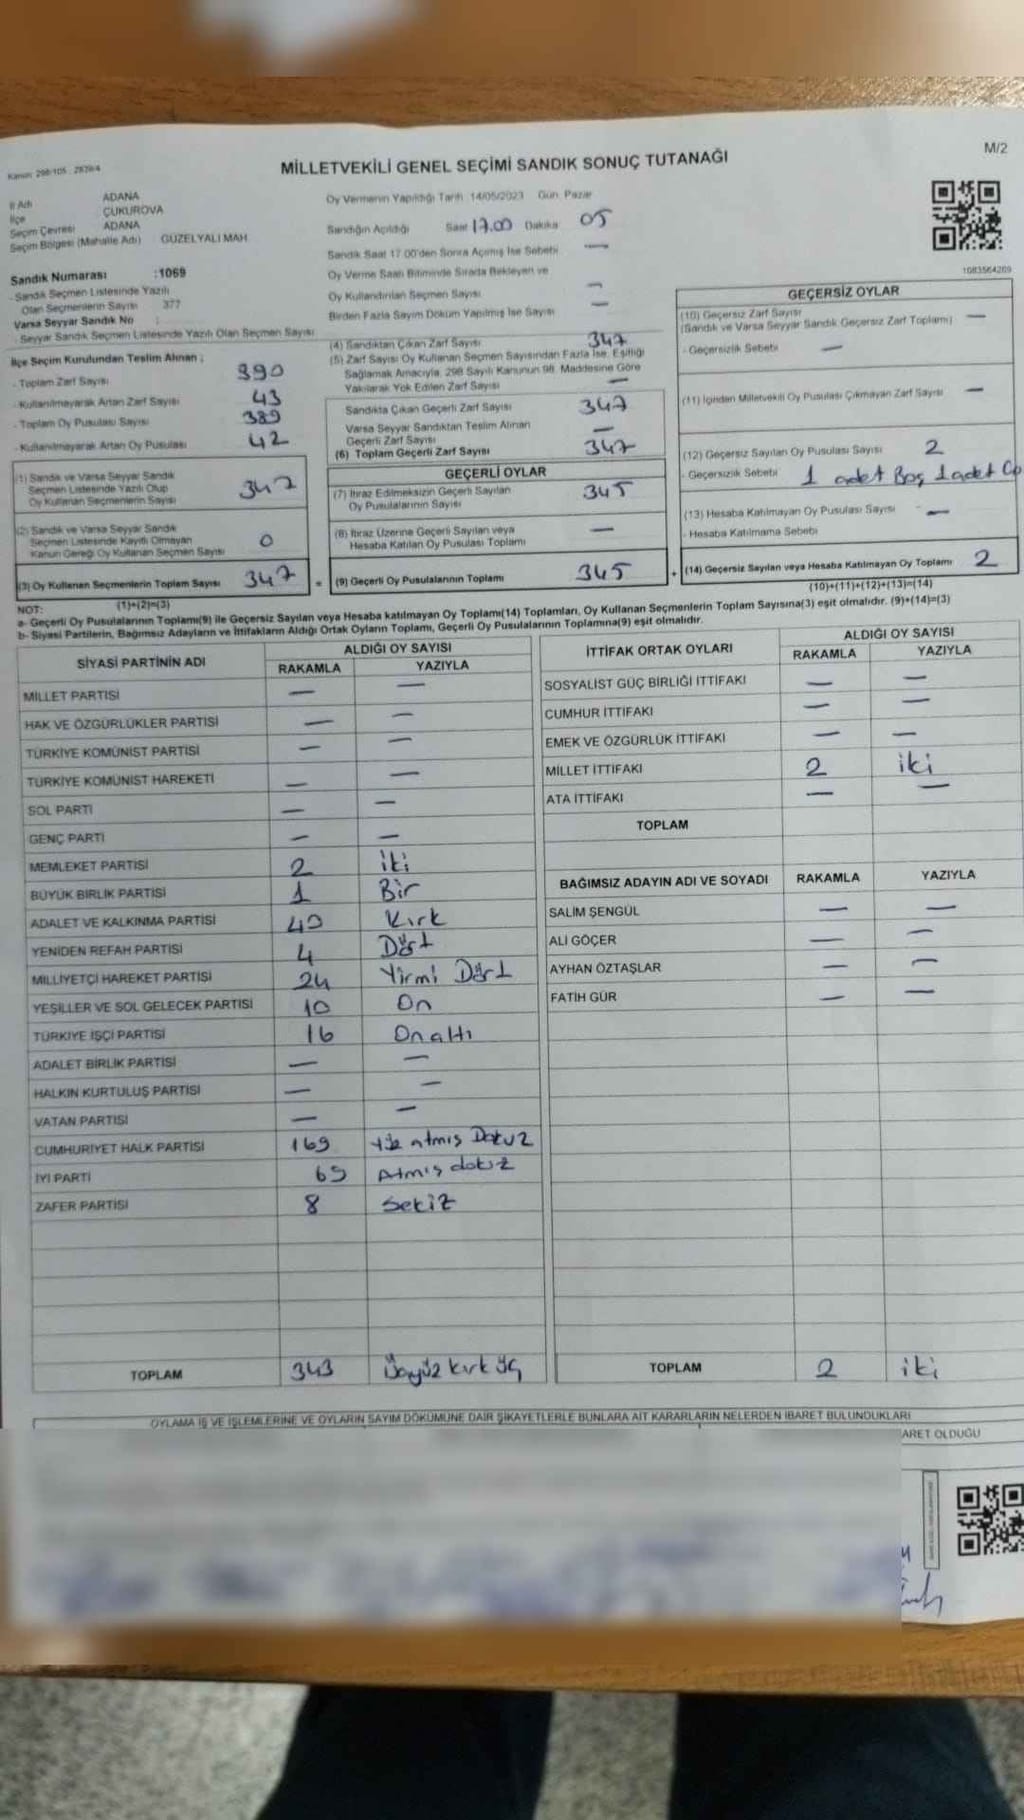 M/2
Kanun: 298/105 , 2839/4
MİLLETVEKİLİ GENEL SEÇİMİ SANDIK SONUÇ TUTANAĞI
İl Adı ADANA
İlçe ÇUKUROVA
Seçim Çevresi ADANA
Seçim Bölgesi (Mahalle Adı) GÜZELYALI MAH.
Sandık Numarası :1069
- Sandık Seçmen Listesinde Yazılı
Olan Seçmenlerin Sayısı 377
Varsa Seyyar Sandık No :
- Seyyar Sandık Seçmen Listesinde Yazılı Olan Seçmen Sayısı:
İlçe Seçim Kurulundan Teslim Alınan ;
- Toplam Zarf Sayısı 390
- Kullanılmayarak Artan Zarf Sayısı 43
- Toplam Oy Pusulası Sayısı 389
- Kullanılmayarak Artan Oy Pusulası 42
(1) Sandık ve Varsa Seyyar Sandık
Seçmen Listesinde Yazılı Olup
Oy Kullanan Seçmenlerin Sayısı 347
(2) Sandık ve Varsa Seyyar Sandık
Seçmen Listesinde Kayıtlı Olmayan
Kanun Gereği Oy Kullanan Seçmen Sayısı 0
(3) Oy Kullanan Seçmenlerin Toplam Sayısı 347 =
(1)+(2)=(3)
Oy Vermenin Yapıldığı Tarih 14/05/2023 Gün: Pazar
Sandığın Açıldığı Saat 17.00 Dakika 05
Sandık Saat 17.00'den Sonra Açılmış İse Sebebi —
Oy Verme Saati Bitiminde Sırada Bekleyen ve
Oy Kullandırılan Seçmen Sayısı —
Birden Fazla Sayım Döküm Yapılmış İse Sayısı —
(4) Sandıktan Çıkan Zarf Sayısı 347
(5) Zarf Sayısı Oy Kullanan Seçmen Sayısından Fazla İse, Eşitliği
Sağlamak Amacıyla, 298 Sayılı Kanunun 98. Maddesine Göre
Yakılarak Yok Edilen Zarf Sayısı —
Sandıkta Çıkan Geçerli Zarf Sayısı 347
Varsa Seyyar Sandıktan Teslim Alınan
Geçerli Zarf Sayısı —
(6) Toplam Geçerli Zarf Sayısı 347
GEÇERLİ OYLAR
(7) İtiraz Edilmeksizin Geçerli Sayılan
Oy Pusulalarının Sayısı 345
(8) İtiraz Üzerine Geçerli Sayılan veya
Hesaba Katılan Oy Pusulası Toplamı —
(9) Geçerli Oy Pusulalarının Toplamı 345 +
1083564269
GEÇERSİZ OYLAR
(10) Geçersiz Zarf Sayısı
(Sandık ve Varsa Seyyar Sandık Geçersiz Zarf Toplamı) —
- Geçersizlik Sebebi —
(11) İçinden Milletvekili Oy Pusulası Çıkmayan Zarf Sayısı —
(12) Geçersiz Sayılan Oy Pusulası Sayısı 2
- Geçersizlik Sebebi 1 adet Boş 1 adet
(13) Hesaba Katılmayan Oy Pusulası Sayısı —
- Hesaba Katılmama Sebebi
(14) Geçersiz Sayılan veya Hesaba Katılmayan Oy Toplamı 2
(10)+(11)+(12)+(13)=(14)
NOT:
a- Geçerli Oy Pusulalarının Toplamı(9) ile Geçersiz Sayılan veya Hesaba katılmayan Oy Toplamı(14) Toplamları, Oy Kullanan Seçmenlerin Toplam Sayısına(3) eşit olmalıdır. (9)+(14)=(3)
b- Siyasi Partilerin, Bağımsız Adayların ve İttifakların Aldığı Ortak Oyların Toplamı, Geçerli Oy Pusulalarının Toplamına(9) eşit olmalıdır.
SİYASİ PARTİNİN ADI ALDIĞI OY SAYISI
RAKAMLA YAZIYLA
MİLLET PARTİSİ — —
HAK VE ÖZGÜRLÜKLER PARTİSİ — —
TÜRKİYE KOMÜNİST PARTİSİ — —
TÜRKİYE KOMÜNİST HAREKETİ — —
SOL PARTİ — —
GENÇ PARTİ — —
MEMLEKET PARTİSİ 2 iki
BÜYÜK BİRLİK PARTİSİ 1 Bir
ADALET VE KALKINMA PARTİSİ 40 Kırk
YENİDEN REFAH PARTİSİ 4 Dört
MİLLİYETÇİ HAREKET PARTİSİ 24 Yirmi Dört
YEŞİLLER VE SOL GELECEK PARTİSİ 10 On
TÜRKİYE İŞÇİ PARTİSİ 16 Onaltı
ADALET BİRLİK PARTİSİ — —
HALKIN KURTULUŞ PARTİSİ — —
VATAN PARTİSİ — —
CUMHURİYET HALK PARTİSİ 169 Yüz atmış Dokuz
İYİ PARTİ 69 Atmış dokuz
ZAFER PARTİSİ 8 Sekiz
TOPLAM 343 Üçyüz kırk üç
İTTİFAK ORTAK OYLARI ALDIĞI OY SAYISI
RAKAMLA YAZIYLA
SOSYALİST GÜÇ BİRLİĞİ İTTİFAKI — —
CUMHUR İTTİFAKI — —
EMEK VE ÖZGÜRLÜK İTTİFAKI — —
MİLLET İTTİFAKI 2 iki
ATA İTTİFAKI — —
TOPLAM
BAĞIMSIZ ADAYIN ADI VE SOYADI RAKAMLA YAZIYLA
SALİM ŞENGÜL — —
ALİ GÖÇER — —
AYHAN ÖZTAŞLAR — —
FATİH GÜR — —
TOPLAM 2 iki
OYLAMA İŞ VE İŞLEMLERİNE VE OYLARIN SAYIM DÖKÜMÜNE DAİR ŞİKAYETLERLE BUNLARA AİT KARARLARIN NELERDEN İBARET BULUNDUKLARI
ARET OLDUĞU